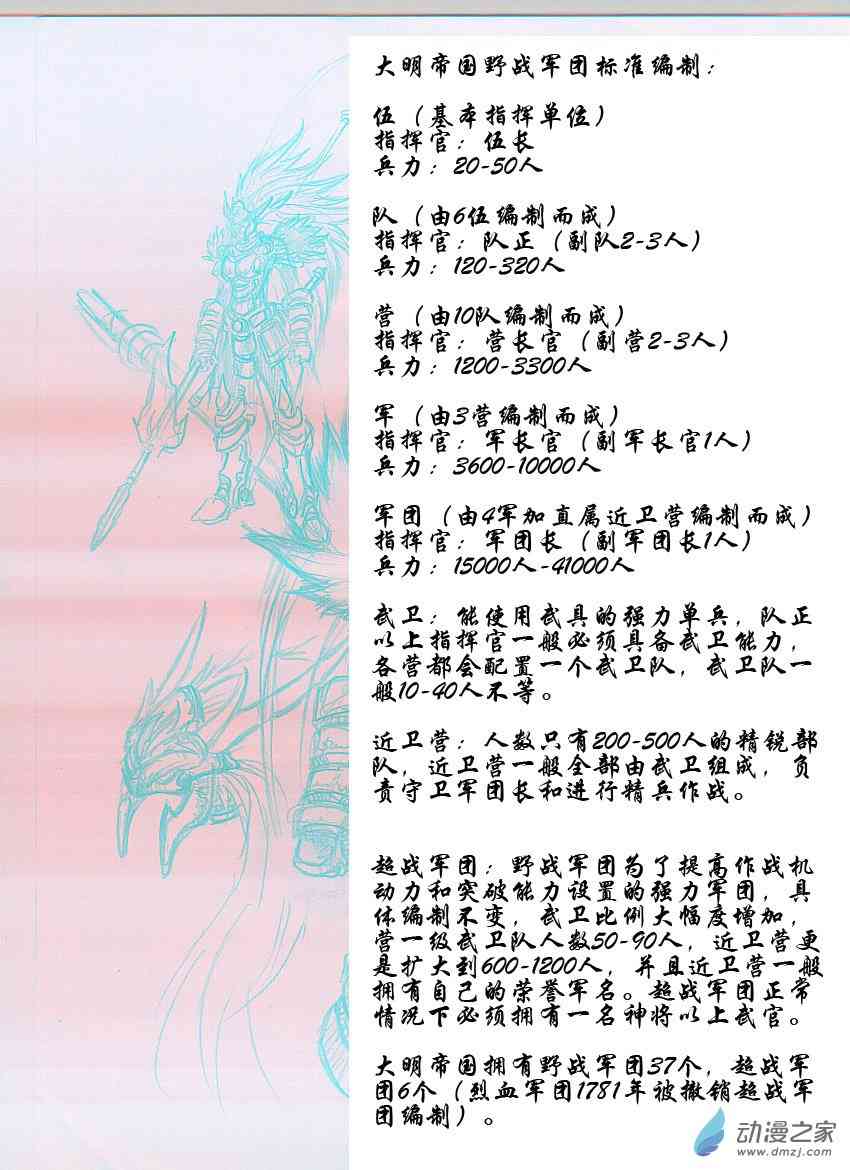 大明帝国野战军团标准编制：
伍（基本指挥单位）
指挥官：伍长
兵力：20-50人
队（由6伍编制而成）
指挥官：队正（副队2-3人）
兵力：120-320人
营（由10队编制而成）
指挥官：营长官（副营2-3人）
兵力：1200-3300人
军（由3营编制而成）
指挥官：军长官（副军长官1人）
兵力：3600-10000人
军团（由4军加直属近卫营编制而成）
指挥官：军团长（副军团长1人）
兵力：15000人-41000人
武卫：能使用武具的强力单兵，队正
以上指挥官一般必须具备武卫能力，
各营都会配置一个武卫队，武卫队一
般10-40人不等。
近卫营：人数只有200-500人的精锐部
队，近卫营一般全部由武卫组成，负
责守卫军团长和进行精兵作战。
超战军团：野战军团为了提高作战机
动力和突破能力设置的强力军团，具
体编制不变，武卫比例大幅度增加，
营一级武卫队人数50-90人，近卫营更
是扩大到600-1200人，并且近卫营一般
拥有自己的荣誉军名。超战军团正常
情况下必须拥有一名神将以上武官。
大明帝国拥有野战军团37个，超战军
团6个（烈血军团1781年被撤销超战军
团编制）。
动漫之家
www.dmzj.com